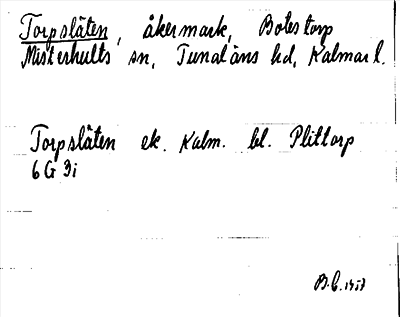 Torpslåten, åkermark, Botestorp
Misterhults sn, Tunaläns hd, Kalmar l.
Torpslåten ek. Kalm. bl. Plittorp
6 G 3i